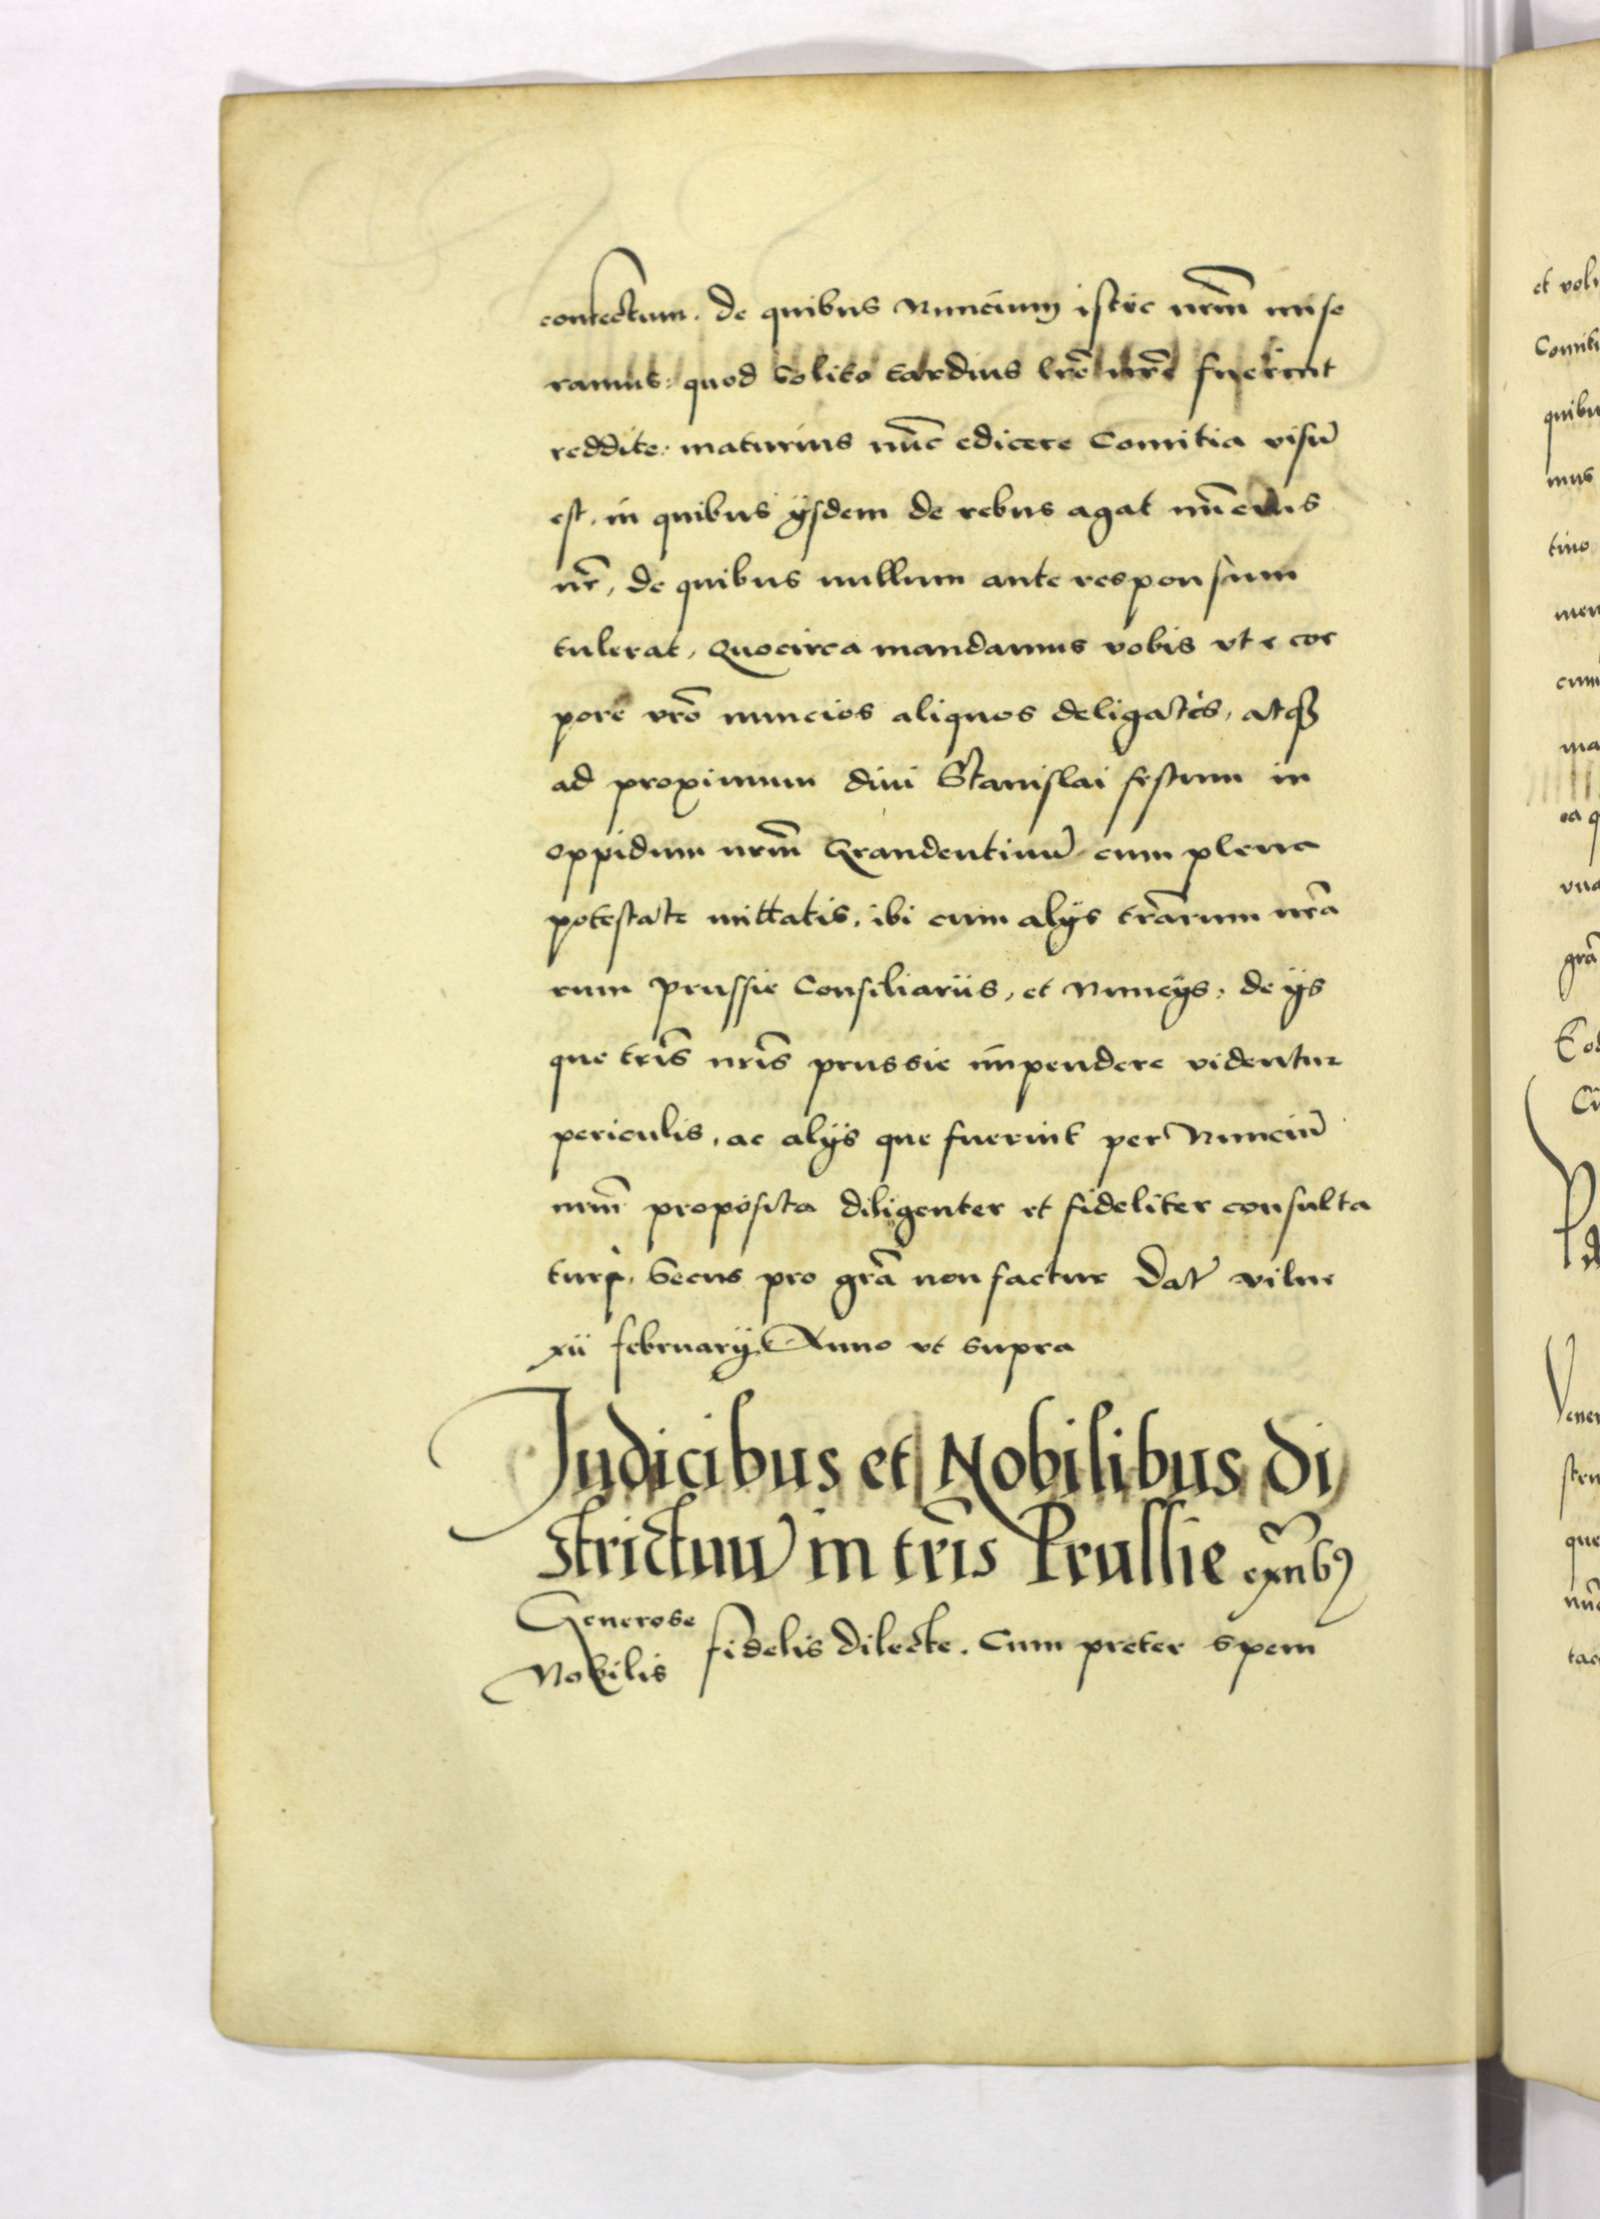 confectum. de quibus Nuncium istuc nrm̃ mise
ramus: quod solito tardius lrẽ nrẽ fuerint
reddite: maturius nũc edicere Comitia visũ
est, in quibus ijsdem de rebus agat nũcius
nr̃, de quibus nullum ante responsum
tulerat, Quocirca mandamus vobis vt e cor
pore vrõ nuncios aliquos deligatis, atq3
ad proximum diui Stanislai festum in
oppidum nrm̃ Grandentinũ cum plena
potestate mittatis, ibi cum alijs trãrum nrã
rum Prussie Consiliariis, et Nuncijs, de ijs
que tris̃ nris̃ prussie impendere videntur
periculis, ac alijs que fuerint per Nunciũ
nrm̃ proposita diligenter et fideliter consulta
turi, Secus pro grã non factur Dat̃ vilne
xii februarij Anno vt supra
Judicibus et Nobilibus di
strictuũ in tris̃ Prussie exñtib9
Generose
Nobilis fidelis dilecte. Cum preter spem
et
Comiti
quibu
mus
tino
men
cum
ma
ea q
grã
Cu
Vener
que